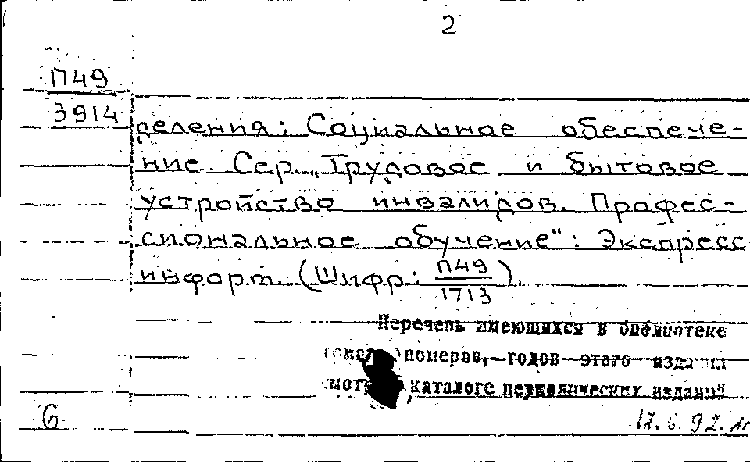 2
П49
3914
деления: Социальное обеспече-
ние. Сер. „Трудовое и бытовое
устройство инвалидов. Профес-
сиональное обучение": Экспресс
информ. (Шифр: П49
1713)
Перечень имеющихся в библиотеке
номеров, годов этого издания
каталоге периодических изданий
6
17.6.92.